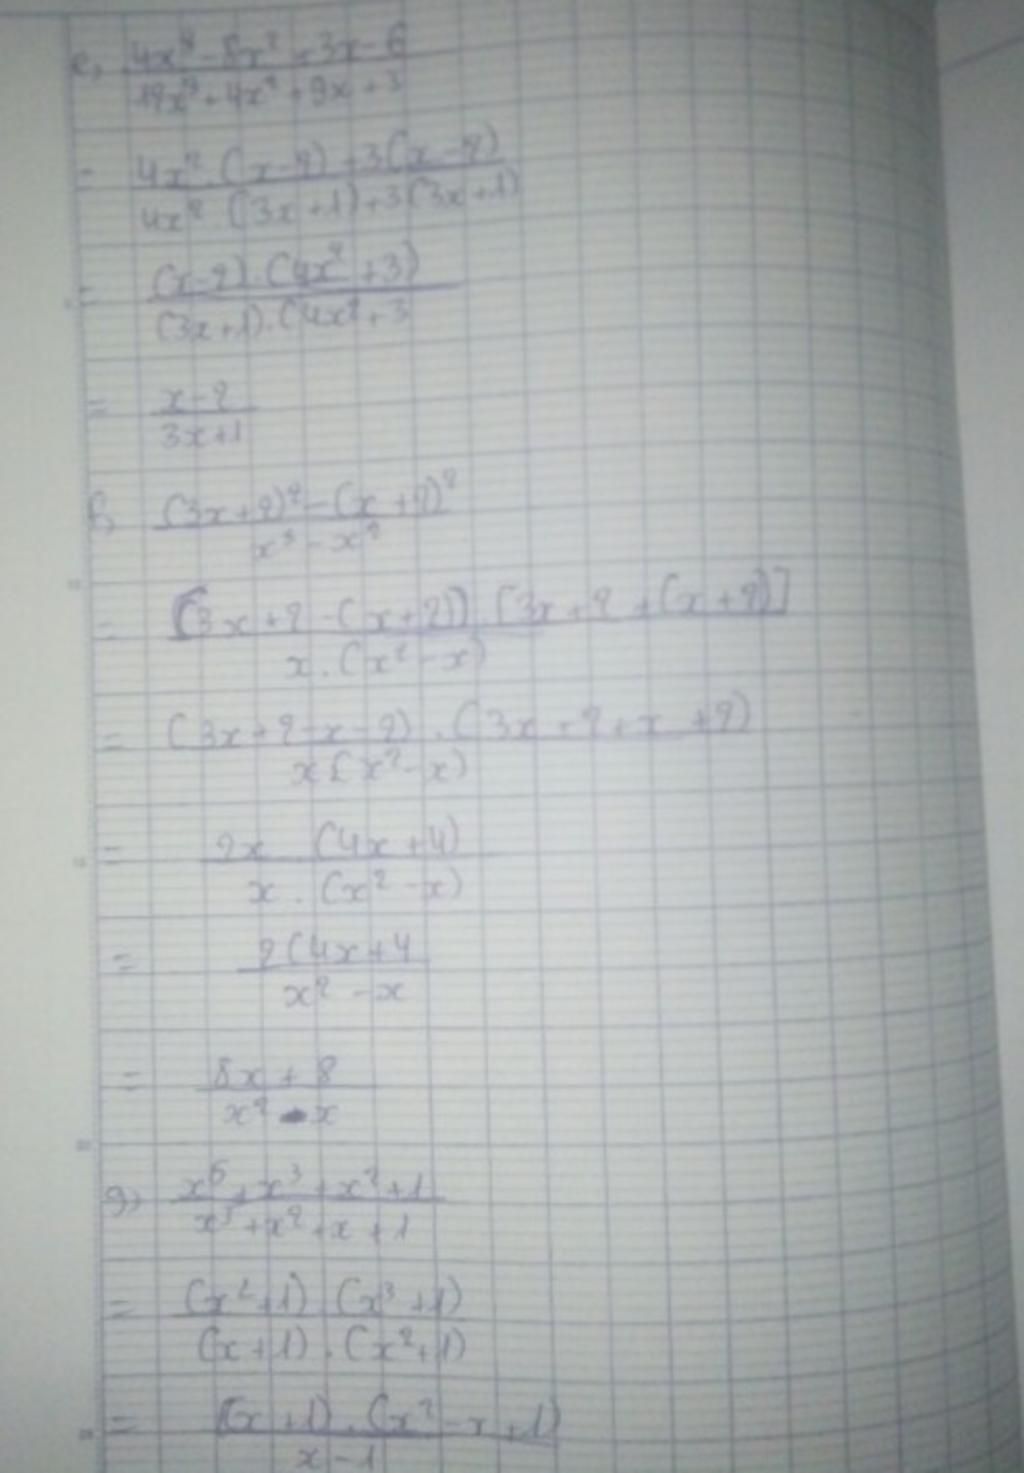 e, (4x³ - 8x² + 3x - 6)/(12x³ + 4x² + 9x + 3)
= (4x² . (x-2) + 3(x-2))/(4x² . (3x+1) + 3(3x+1))
= ((x-2) . (4x² + 3))/((3x+1) . (4x² + 3
= (x-2)/(3x+1)
f, ((3x+2)² - (x+2)²)/(x³ - x²)
= [3x+2 - (x+2)] . [3x+2 + (x+2)]/(x . (x² - x))
= (3x+2-x-2) . (3x+2+x+2)/(x(x² - x))
= 2x (4x+4)/(x . (x² - x))
= 2(4x+4/(x² - x)
= (8x+8)/(x² - x)
g, (x⁵ + x³ + x² + 1)/(x³ + x² + x + 1)
= (x²+1) (x³+1)/((x+1) . (x²+1))
= (x+1) . (x² - x + 1)/(x-1)